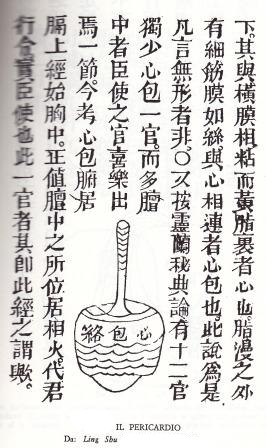 下。其與橫膜相粘而黃脂裹者心也。脂漫之外
有細筋膜如絲與心相連者心包也。此說為是
凡言無形者非。○又按靈蘭秘典論有十二官
獨少心包一官。而多膻
中者臣使之官喜樂出
焉一節。今考心包腑居
膈上經始胸中。正值膻中之所位居相火。代君
行實臣使也此一官者其即此經之謂歟。
心包絡
IL PERICARDIO
Da: Ling Shu